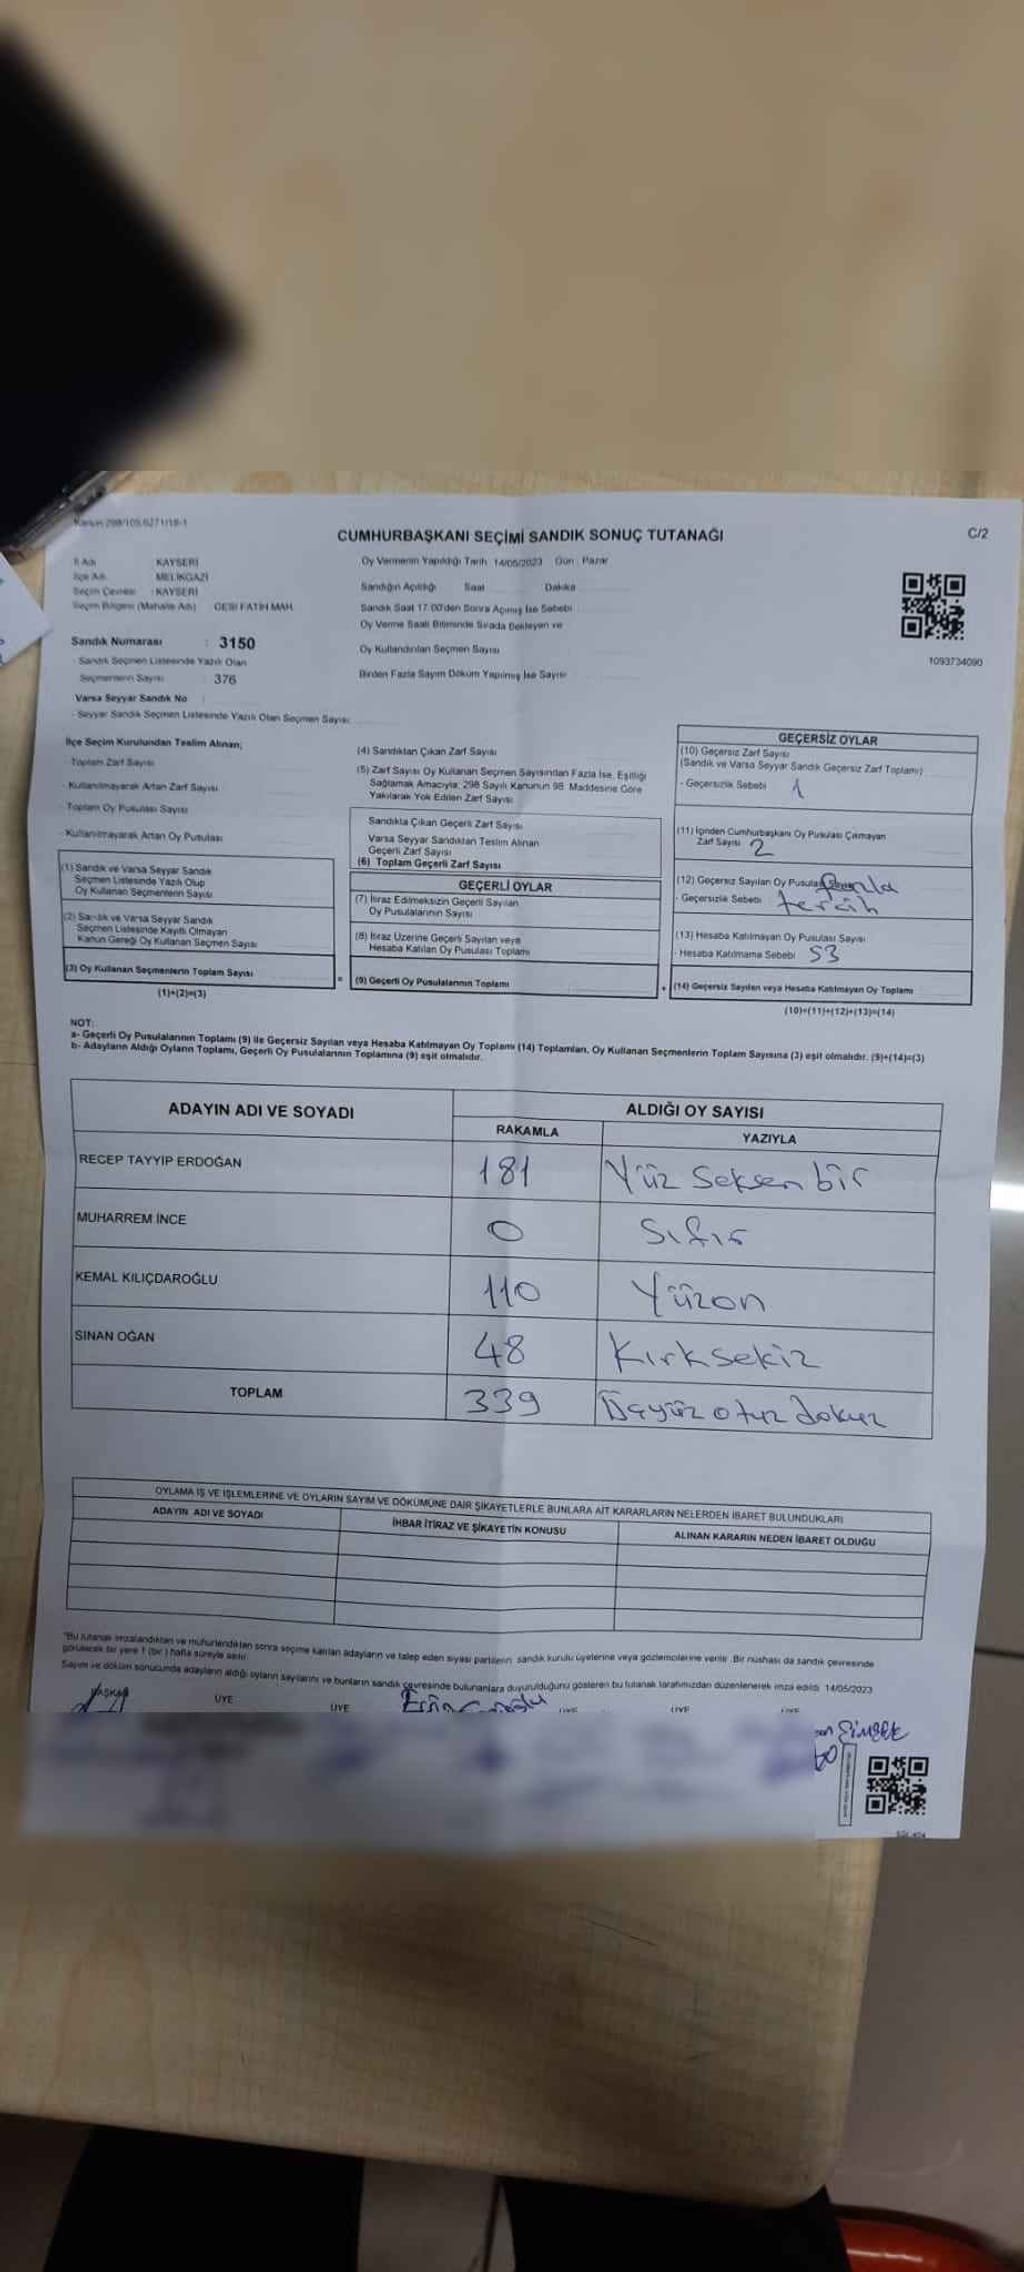 Kanun 298/105,6271/18-1
CUMHURBAŞKANI SEÇİMİ SANDIK SONUÇ TUTANAĞI
C/2
İl Adı KAYSERİ
İlçe Adı MELİKGAZİ
Seçim Çevresi : KAYSERİ
Seçim Bölgesi (Mahalle Adı) GESİ FATİH MAH.
Sandık Numarası : 3150
- Sandık Seçmen Listesinde Yazılı Olan
Seçmenlerin Sayısı : 376
Varsa Seyyar Sandık No :
- Seyyar Sandık Seçmen Listesinde Yazılı Olan Seçmen Sayısı:
Oy Vermenin Yapıldığı Tarih 14/05/2023 Gün Pazar
Sandığın Açıldığı Saat Dakika
Sandık Saat 17:00'den Sonra Açılmış İse Sebebi
Oy Verme Saati Bitiminde Sırada Bekleyen ve
Oy Kullandırılan Seçmen Sayısı
Birden Fazla Sayım Döküm Yapılmış İse Sayısı
1093734090
İlçe Seçim Kurulundan Teslim Alınan;
- Toplam Zarf Sayısı
- Kullanılmayarak Artan Zarf Sayısı
- Toplam Oy Pusulası Sayısı
- Kullanılmayarak Artan Oy Pusulası
(1) Sandık ve Varsa Seyyar Sandık
Seçmen Listesinde Yazılı Olup
Oy Kullanan Seçmenlerin Sayısı
(2) Sandık ve Varsa Seyyar Sandık
Seçmen Listesinde Kayıtlı Olmayan
Kanun Gereği Oy Kullanan Seçmen Sayısı
(3) Oy Kullanan Seçmenlerin Toplam Sayısı
(1)+(2)=(3)
(4) Sandıktan Çıkan Zarf Sayısı
(5) Zarf Sayısı Oy Kullanan Seçmen Sayısından Fazla İse, Eşitliği
Sağlamak Amacıyla; 298 Sayılı Kanunun 98. Maddesine Göre
Yakılarak Yok Edilen Zarf Sayısı
Sandıkta Çıkan Geçerli Zarf Sayısı
Varsa Seyyar Sandıktan Teslim Alınan
Geçerli Zarf Sayısı
(6) Toplam Geçerli Zarf Sayısı
GEÇERLİ OYLAR
(7) İtiraz Edilmeksizin Geçerli Sayılan
Oy Pusulalarının Sayısı
(8) İtiraz Üzerine Geçerli Sayılan veya
Hesaba Katılan Oy Pusulası Toplamı
= (9) Geçerli Oy Pusulalarının Toplamı
GEÇERSİZ OYLAR
(10) Geçersiz Zarf Sayısı
(Sandık ve Varsa Seyyar Sandık Geçersiz Zarf Toplamı)
- Geçersizlik Sebebi 1
(11) İçinden Cumhurbaşkanı Oy Pusulası Çıkmayan
Zarf Sayısı 2
(12) Geçersiz Sayılan Oy Pusula fazla
- Geçersizlik Sebebi tercih
(13) Hesaba Katılmayan Oy Pusulası Sayısı
- Hesaba Katılmama Sebebi 53
+ (14) Geçersiz Sayılan veya Hesaba Katılmayan Oy Toplamı
(10)+(11)+(12)+(13)=(14)
NOT:
a- Geçerli Oy Pusulalarının Toplamı (9) ile Geçersiz Sayılan veya Hesaba Katılmayan Oy Toplamı (14) Toplamları, Oy Kullanan Seçmenlerin Toplam Sayısına (3) eşit olmalıdır. (9)+(14)=(3)
b- Adayların Aldığı Oyların Toplamı, Geçerli Oy Pusulalarının Toplamına (9) eşit olmalıdır.
ADAYIN ADI VE SOYADI
ALDIĞI OY SAYISI
RAKAMLA YAZIYLA
RECEP TAYYİP ERDOĞAN 181 Yüz seksen bir
MUHARREM İNCE 0 Sıfır
KEMAL KILIÇDAROĞLU 110 Yüzon
SİNAN OĞAN 48 Kırksekiz
TOPLAM 339 Üçyüz otuz dokuz
OYLAMA İŞ VE İŞLEMLERİNE VE OYLARIN SAYIM VE DÖKÜMÜNE DAİR ŞİKAYETLERLE BUNLARA AİT KARARLARIN NELERDEN İBARET BULUNDUKLARI
ADAYIN ADI VE SOYADI İHBAR İTİRAZ VE ŞİKAYETİN KONUSU ALINAN KARARIN NEDEN İBARET OLDUĞU
"Bu tutanak imzalandıktan ve mühürlendikten sonra seçime katılan adayların ve talep eden siyasi partilerin sandık kurulu üyelerine veya gözlemcilerine verilir. Bir nüshası da sandık çevresinde
görülecek bir yere 1 (bir) hafta süreyle asılır.
Sayım ve döküm sonucunda adayların aldığı oyların sayılarını ve bunların sandık çevresinde bulunanlara duyurulduğunu gösteren bu tutanak tarafımızdan düzenlenerek imza edildi. 14/05/2023
BAŞKAN ÜYE ÜYE ÜYE ÜYE ÜYE
Şimşek